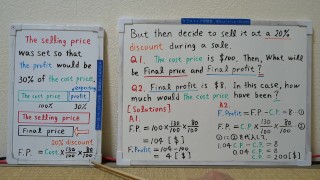 The selling price
was set so that
the profit would be
30% of the cost price.
expecting
The cost price
profit
100%
30%
The selling price
Final price
20% discount
F.P. = Cost × 130/100 × 80/100
But then decide to sell it at a 20%
discount during a sale.
Q1. The cost price is $100. Then, What will
be Final price and Final profit?
Q2. Final profit is $8. In this case, how
much would the cost price have been?
[Solutions]
A1.
F.P. = 100 × 130/100 × 80/100
= 104 [$]
F.Profit = 104 - 100
= 4 [$]
A2.
F.Profit = F.P. - C.P. = 8 -①
F.P. = C.P. × 130/100 × 80/100 -②
1.04 C.P. - C.P. = 8
0.04 C.P. = 8
C.P. = 200 [$]